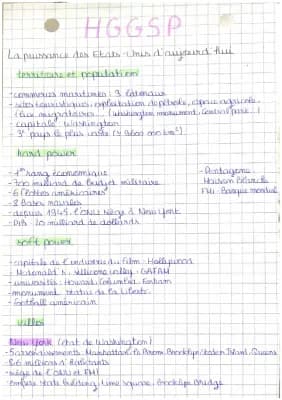 HGGSP
La puissance des Etats-Unis d'aujourd'hui
territoire et population
- communus maritimes : 3 littoraux
- sites touristiques, exploitation de pétrole, espace agricole
(flux migratoires ... (Washington monument, Central parc..)
- capitale Washington
- 3e pays le plus vaste (≈ 9600 000 km²)
hard power
- 1er rang économique
- 700 milliard de budget militaire
- 6 flottes américaines
- 8 Bases navales
- depuis 1945, l'ONU siège à New york
- PIB 20 milliard de dollards
- Pentagone
Maison Blanche
FMI, Banque mondial
soft power
- capitale de l'industrie du film : Hollywood
- Macdonald's, sillicone valley, GAFAM
- universités : Howard, Columbia, Fordham
- monument : statue de la Liberté
- football américain
villes
New York (état de Washington)
- 5 arrondissements : Manhattan, le Bronx, Brooklyn, Staten Island, Queens
- 8,6 millions d'habitants
- siège de l'ONU et FMI
- empire state building, time square, Brooklyn Bridge